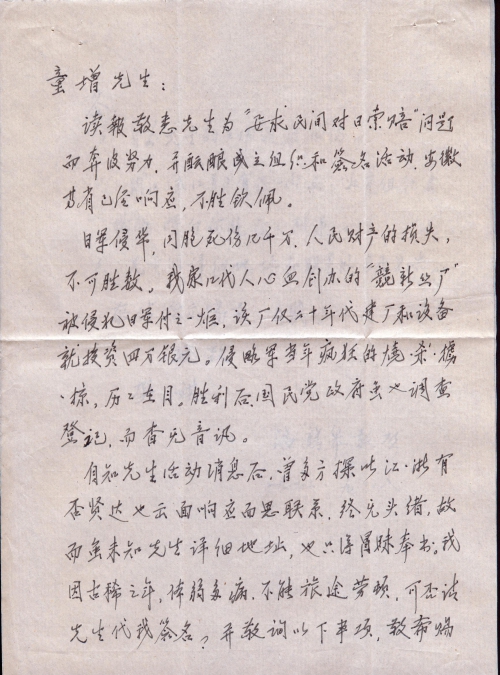 童增先生：
读报敬悉先生为“要求民间对日索赔”问题
而奔波努力，并酝酿成立组织和签名活动，安徽
省有已经响应，不胜钦佩。
日军侵华，同胞死伤几千万，人民财产的损失，
不可胜数。我家几代人心血创办的“競新丝厂”
被侵犯日军付之一炬，该厂仅二十年代建厂和设备
就投资四万银元。侵略军当年疯狂的烧·杀·掳
·掠，历历在目。胜利后国民党政府虽也调查
登记，而杳无音讯。
自知先生活动消息后，曾多方探听江·浙有
否贤达也出面响应而思联系，终无头绪，故
而虽未知先生详细地址，也只得冒昧奉书。我
因古稀之年，体弱多病，不能旅途劳顿，可否请
先生代我签名？并敬询以下事项，敬希赐